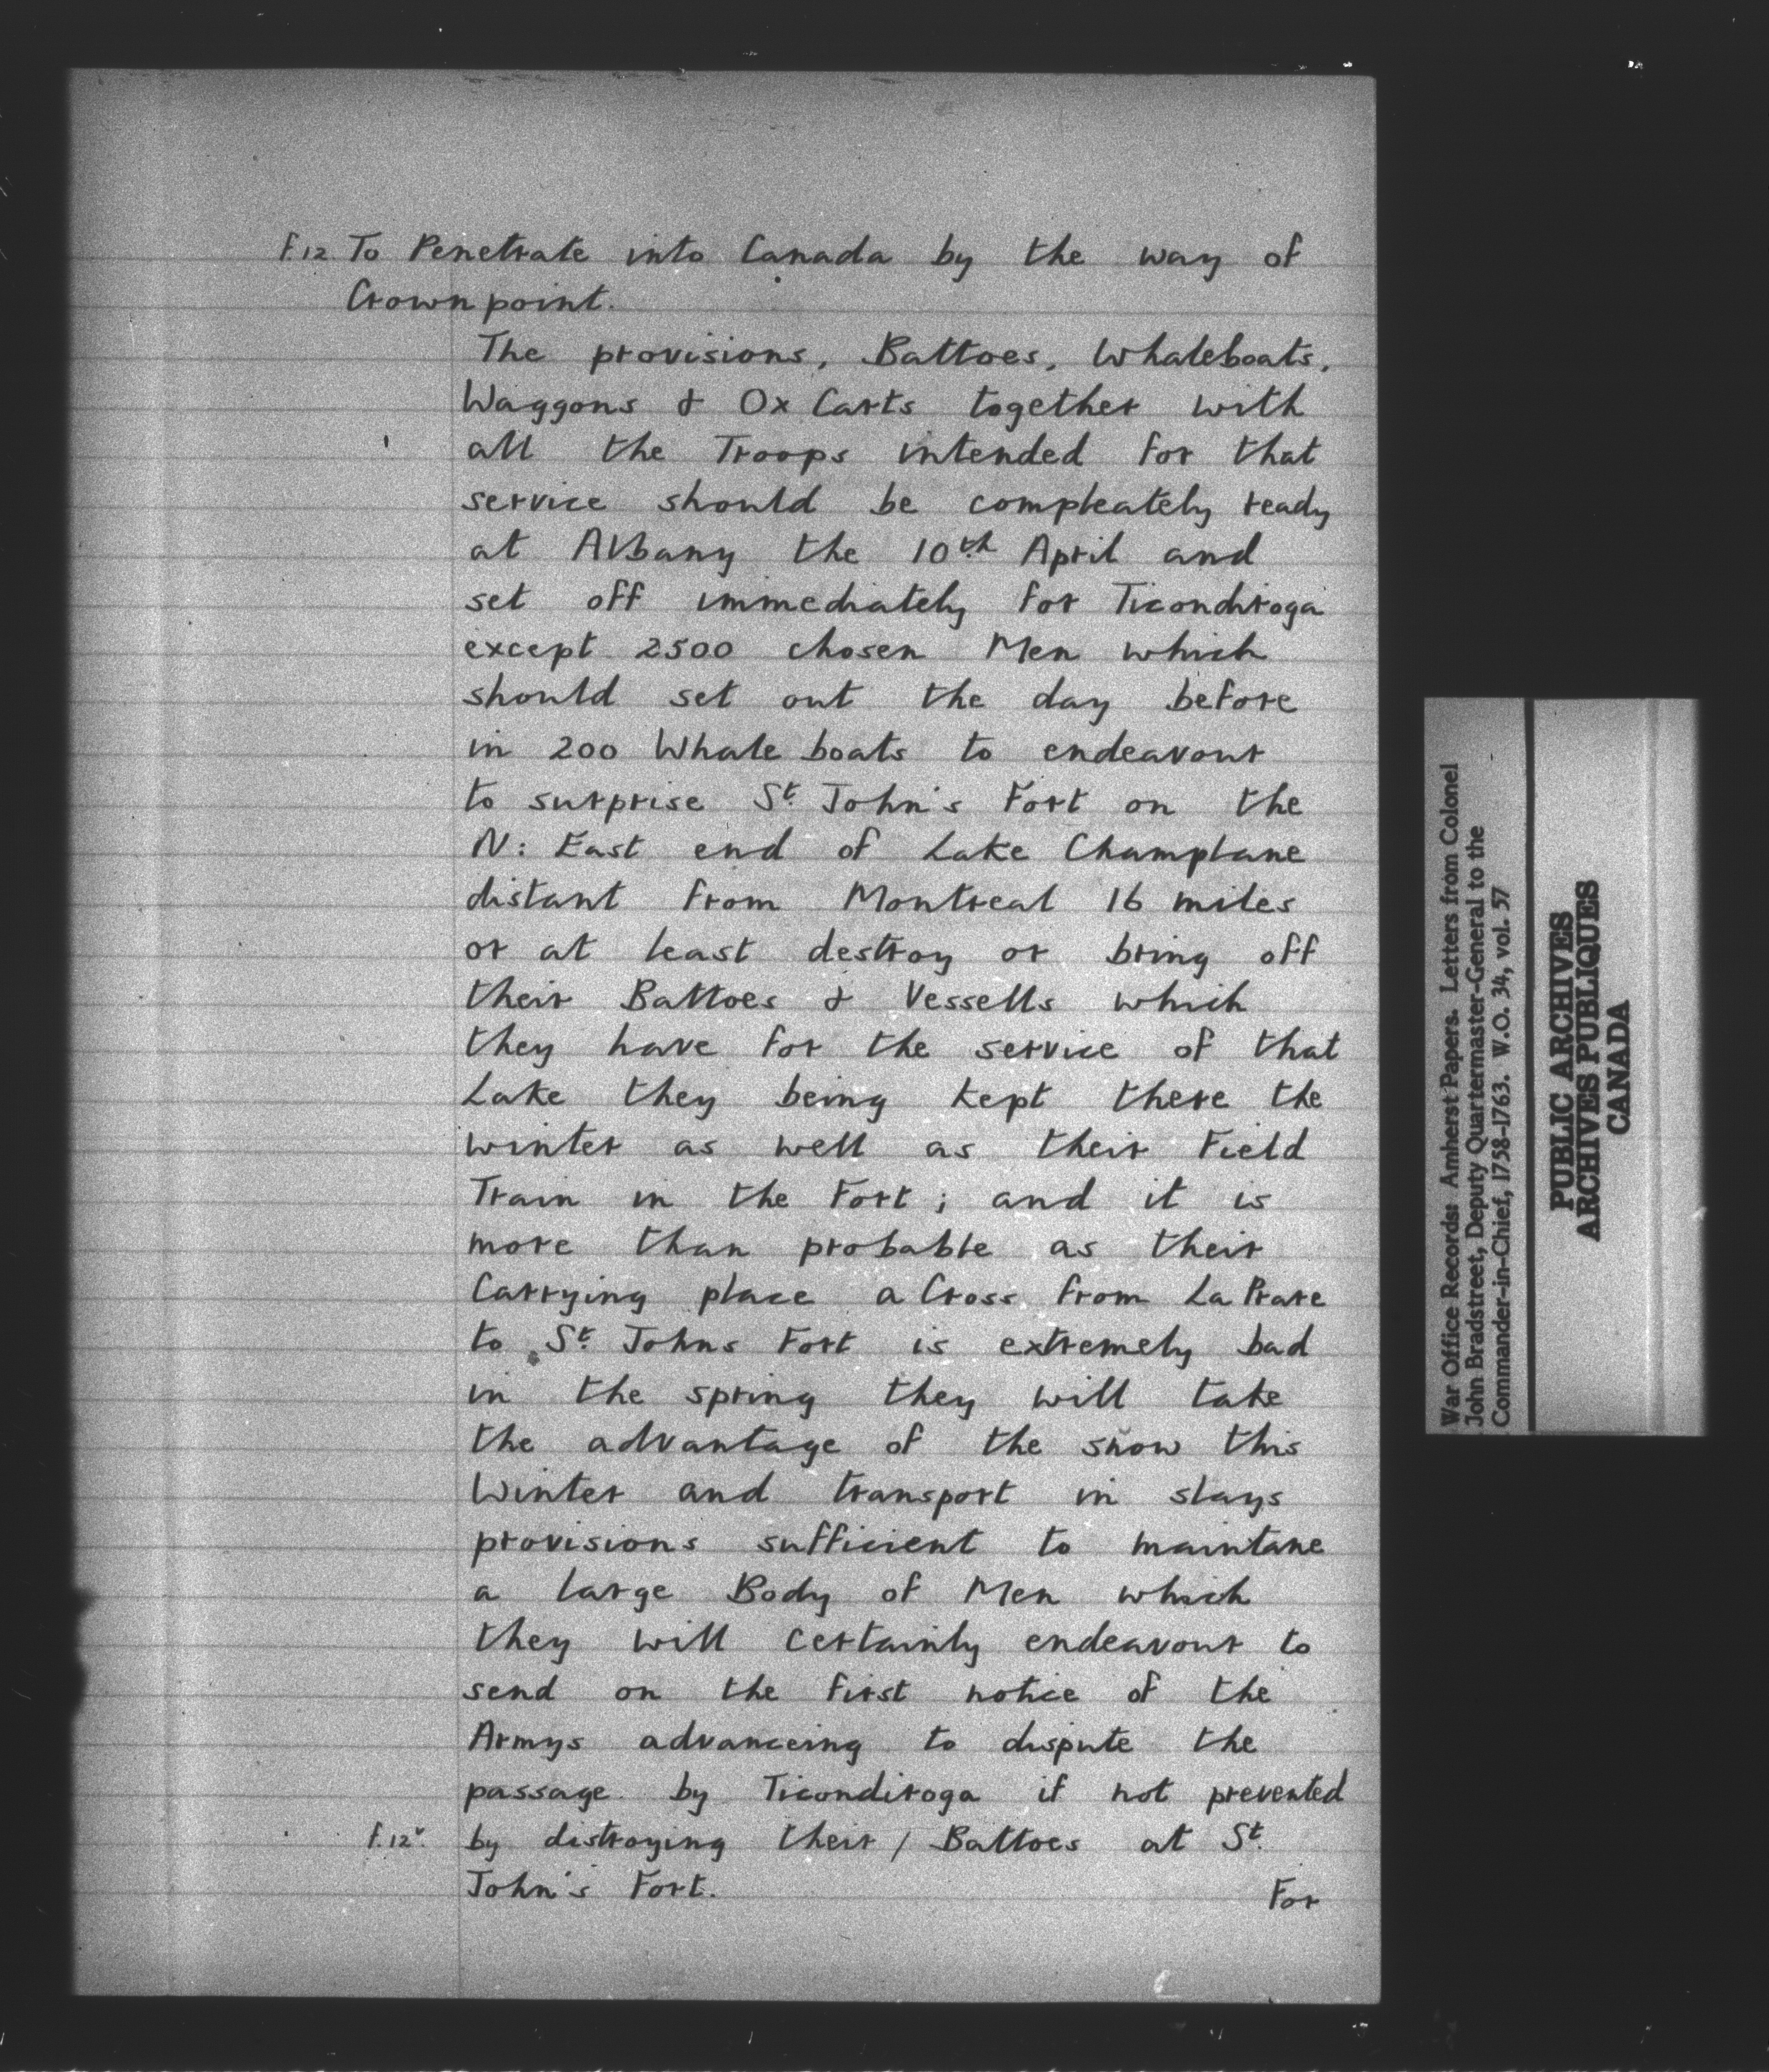 f.12 To Penetrate into Canada by the way of
Crown point.
The provisions, Battoes, Whaleboats,
Waggons & Ox Carts together with
all the Troops intended for that
service should be compleately ready
at Albany the 10th April and
set off immediately for Ticondiroga
except 2500 chosen Men which
should set out the day before
in 200 Whale boats to endeavour
to surprise St. John's Fort on the
N: East end of Lake Champlane
distant from Montreal 16 miles
or at least destroy or bring off
their Battoes & Vessells which
they have for the service of that
Lake they being kept there the
winter as well as their Field
Train in the Fort; and it is
more than probable as their
Carrying place a Cross from La Prare
to St. Johns Fort is extremely bad
in the spring they will take
the advantage of the snow this
Winter and transport in slays
provisions sufficient to maintane
a large Body of Men which
they will certainly endeavour to
send on the first notice of the
Armys advanceing to dispute the
passage by Ticondiroga if not prevented
f.12v. by distroying their / Battoes at St.
John's Fort.
For
War Office Records: Amherst Papers. Letters from Colonel
John Bradstreet, Deputy Quartermaster-General to the
Commander-in-Chief, 1758-1763. W.O. 34, vol. 57
PUBLIC ARCHIVES
ARCHIVES PUBLIQUES
CANADA